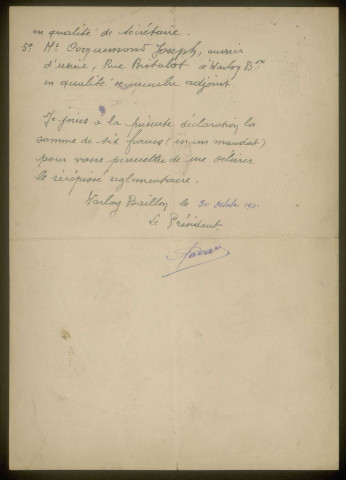 en qualité de Secrétaire.
5° Mr Coquemond Joseph, ouvrier
d'usine, Rue Bistalot à Warloy Bon
en qualité de membre adjoint
Je joins à la présente déclaration la
somme de six francs (en un mandat)
pour vous permettre de me délivrer
le récépissé réglementaire.
Warloy Baillon le 20 octobre
Le Président